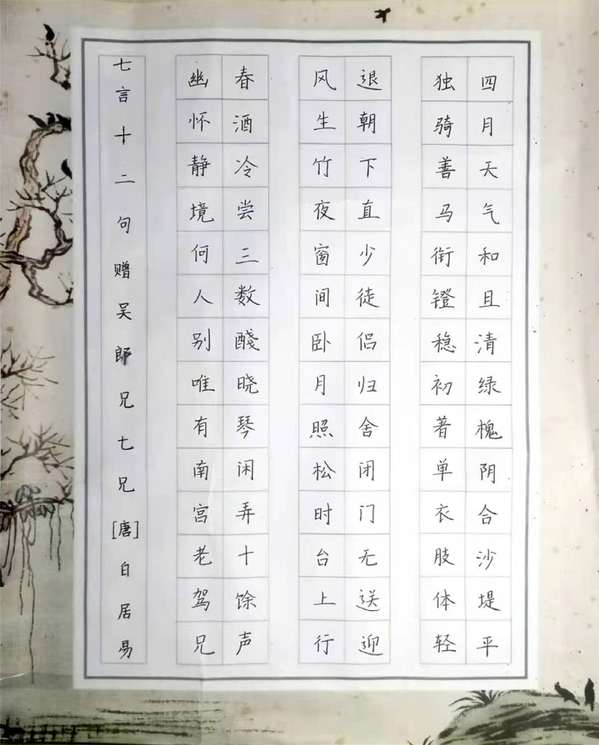 四月天气和且清绿槐阴合沙堤平
独骑善马衔镫稳初著单衣肢体轻
退朝下直少徒侣归舍闭门无送迎
风生竹夜窗间卧月照松时台上行
春酒冷尝三数醆晓琴闲弄十馀声
幽怀静境何人别唯有南宫老驾兄
七言十二句赠吴郎兄七兄[唐]白居易